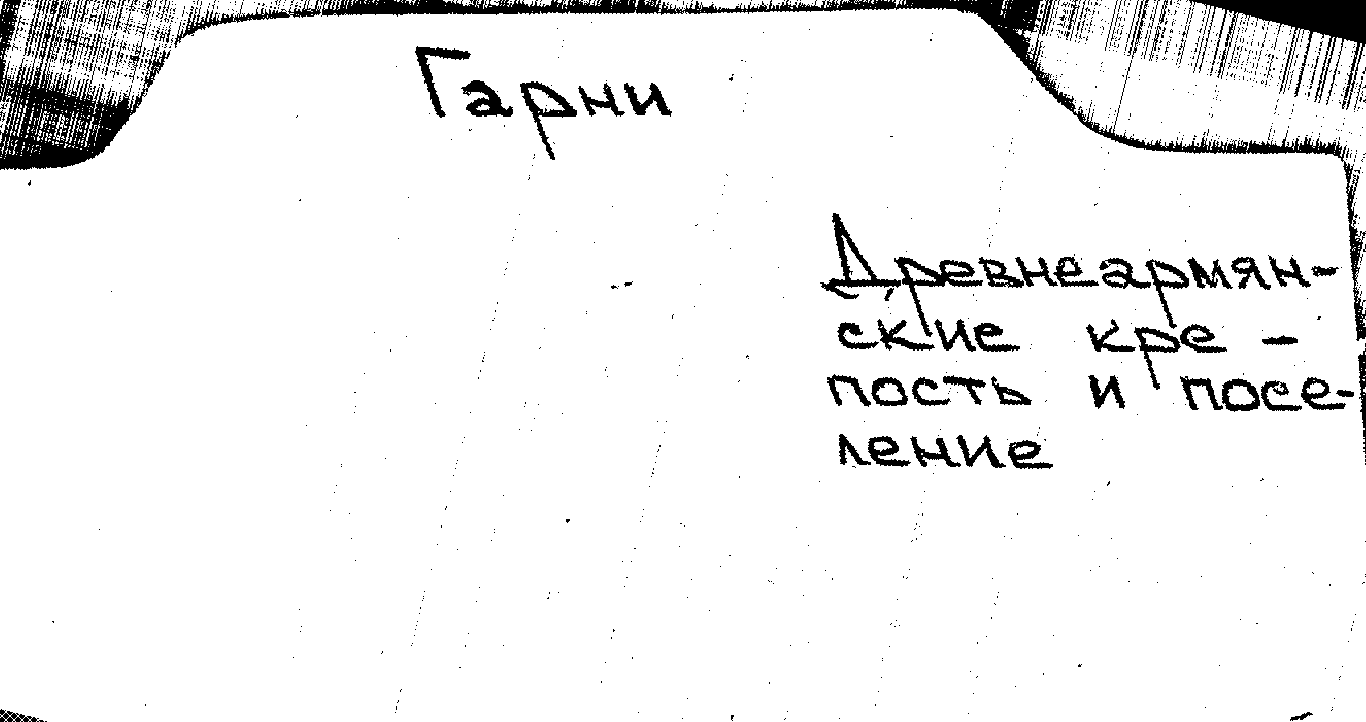 Гарни
Древнеармян-
ские кре -
пость и посе-
ление